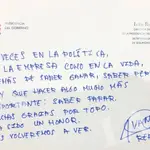 VECES EN LA POLÍTICA,
LA EMPRESA COMO EN LA VIDA,
MÁS DE SABER GANAR, SABER PER
Y QUE HACER ALGO MUCHO MÁS
PORTANTE: SABER PARAR.
CHAS GRACIAS POR TODO.
SIDO UN HONOR.
OS VOLVEREMOS A VER.